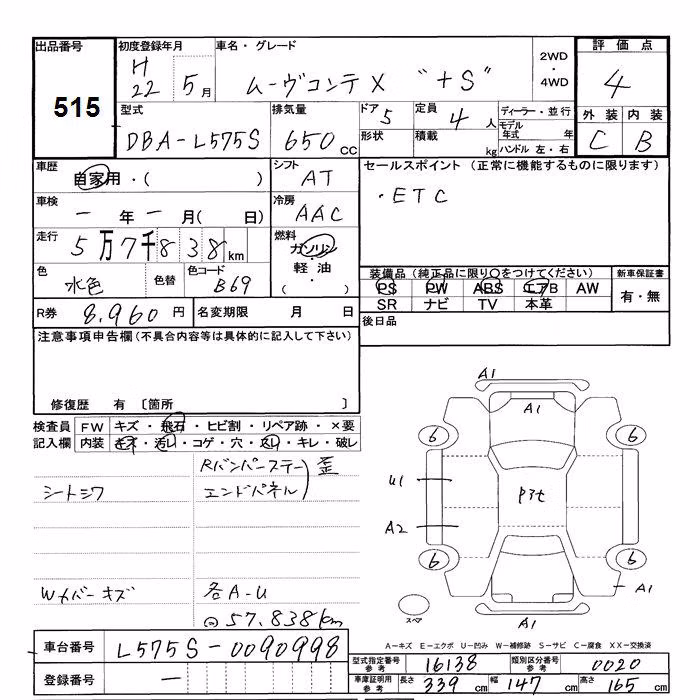 出品番号 初度登録年月 車名・グレード 2WD・4WD 評価点
515
H22 5月 ムーヴコンテ X "+S" 4
型式 排気量 ドア 5 定員 4人 ディーラー・並行 外装 内装
DBA-L575S 650cc 形状 積載 kg モデル年式 年 C B
ハンドル 左・右
車歴 シフト セールスポイント (正常に機能するものに限ります)
自家用・( ) AT
・ETC
車検 冷房
ー年ー月( 日) AAC
走行 燃料
5万7千838km ガソリン・軽油・( )
色 色替 色コード 装備品 (純正品に限り○をつけてください) 新車保証書
水色 B69 PS PW ABS エアB AW 有・無
SR ナビ TV 本革
R券 8,960円 名変期限 月 日 後日品
注意事項申告欄 (不具合内容等は具体的に記入して下さい)
修復歴 有 〔箇所 〕
検査員 FW キズ・飛石・ヒビ割・リペア跡・×要
記入欄 内装 キズ・汚レ・コゲ・穴・スレ・キレ・破レ
Rバンパーステー
シートシワ エンドパネル 歪
Wカバーキズ 各A-U
57,838km
A1
A1
6 6
U1 P3t
A2
6 6
A1
スペア A1
A-キズ E-エクボ U-凹み W-補修跡 S-サビ C-腐食 XX-交換済
車台番号 L575S-0090998
型式指定番号 参考 16138 類別区分番号 参考 0020
登録番号 ー
車庫証明用 参考 長さ 339cm 幅 147cm 高さ 165cm